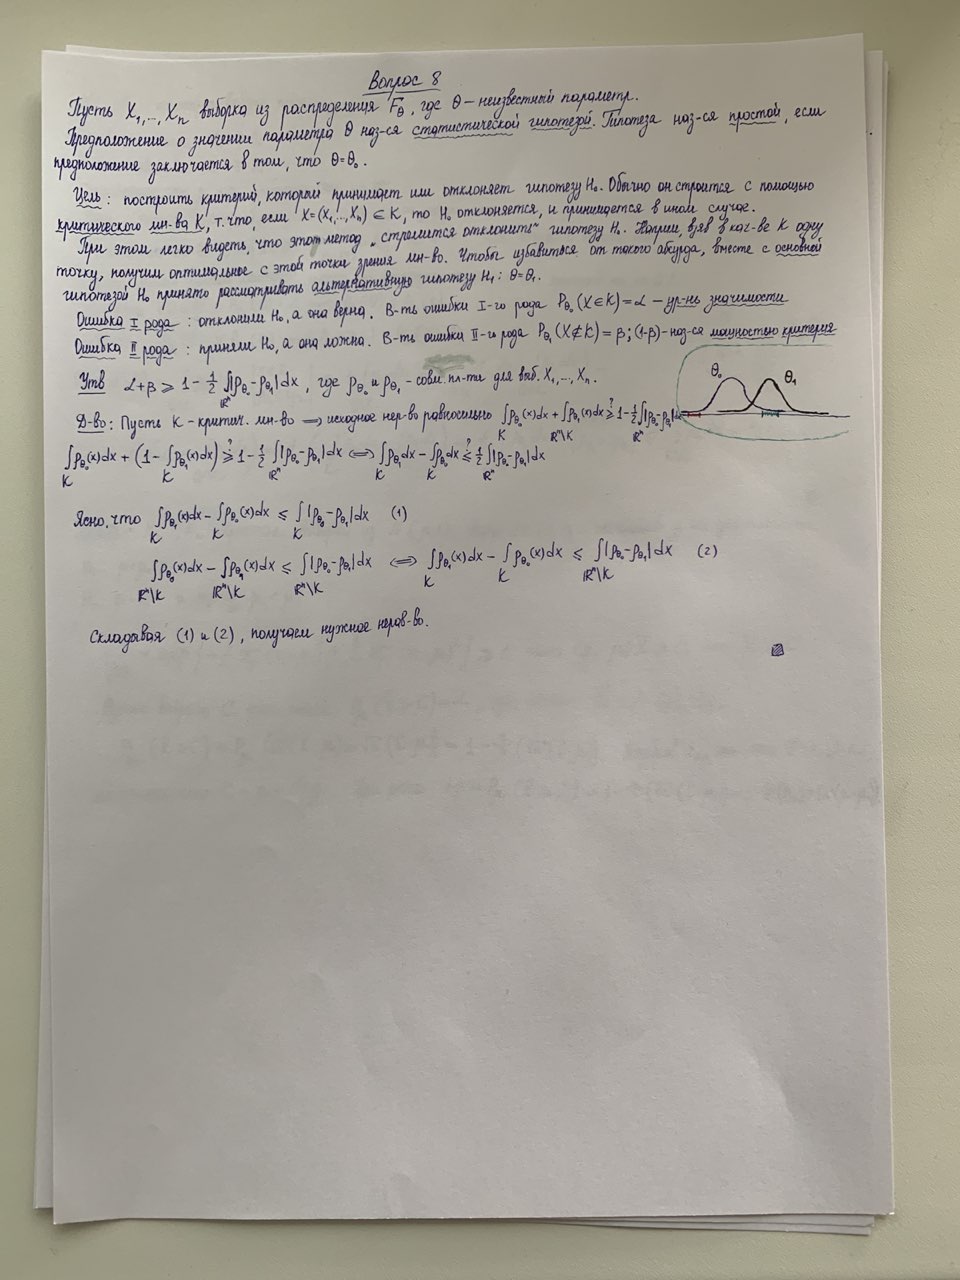 Вопрос 8
Пусть X₁,..., Xₙ выборка из распределения F_θ, где θ — неизвестный параметр.
Предположение о значении параметра θ наз-ся статистической гипотезой. Гипотеза наз-ся простой, если
предположение заключается в том, что θ=θ₀.
Цель: построить критерий, который принимает или отклоняет гипотезу H₀. Обычно он строится с помощью
критического мн-ва K, т.что, если X=(X₁,..,Xₙ) ∈ K, то H₀ отклоняется, и принимается в ином случае.
При этом легко видеть, что этот метод „стремится отклонить" гипотезу H₀. Наприм, взяв в кач-ве K одну
точку, получим оптимальное с этой точки зрения мн-во. Чтобы избавиться от такого абсурда, вместе с основной
гипотезой H₀ принято рассматривать альтернативную гипотезу H₁: θ=θ₁.
Ошибка I рода: отклонили H₀, а она верна. В-ть ошибки I-го рода P_θ₀(X∈K)=α — ур-нь значимости
Ошибка II рода: приняли H₀, а она ложна. В-ть ошибки II-го рода P_θ₁(X∉K)=β; (1-β)-наз-ся мощностью критерия
Утв α+β ⩾ 1 - ½ ∫_ℝⁿ |p_θ₀-p_θ₁| dx, где p_θ₀ и p_θ₁ - совм. пл-ти для выб. X₁,...,Xₙ.
θ₀ θ₁
Д-во: Пусть K - критич. мн-во ⟹ исходное нер-во равносильно ∫_K p_θ₀(x)dx + ∫_ℝⁿ\K p_θ₁(x)dx ⩾? 1-½∫_ℝⁿ|p_θ₀-p_θ₁|dx
∫_K p_θ₀(x)dx + (1-∫_K p_θ₁(x)dx) ⩾? 1-½ ∫_ℝⁿ |p_θ₀-p_θ₁|dx ⟺ ∫_K p_θ₁dx - ∫_K p_θ₀dx ⩽? ½∫_ℝⁿ|p_θ₀-p_θ₁|dx
Ясно, что ∫_K p_θ₁(x)dx - ∫_K p_θ₀(x)dx ⩽ ∫_K |p_θ₀-p_θ₁|dx (1)
∫_ℝⁿ\K p_θ₀(x)dx - ∫_ℝⁿ\K p_θ₁(x)dx ⩽ ∫_ℝⁿ\K |p_θ₀-p_θ₁|dx ⟺ ∫_K p_θ₁(x)dx - ∫_K p_θ₀(x)dx ⩽ ∫_ℝⁿ\K |p_θ₀-p_θ₁|dx (2)
Складывая (1) и (2), получаем нужное нерав-во.